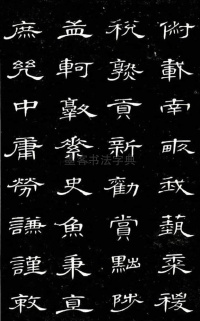 俶載南畝我藝黍稷
稅熟貢新勸賞黜陟
孟軻敦素史魚秉直
庶幾中庸勞謙謹敕
书法字典